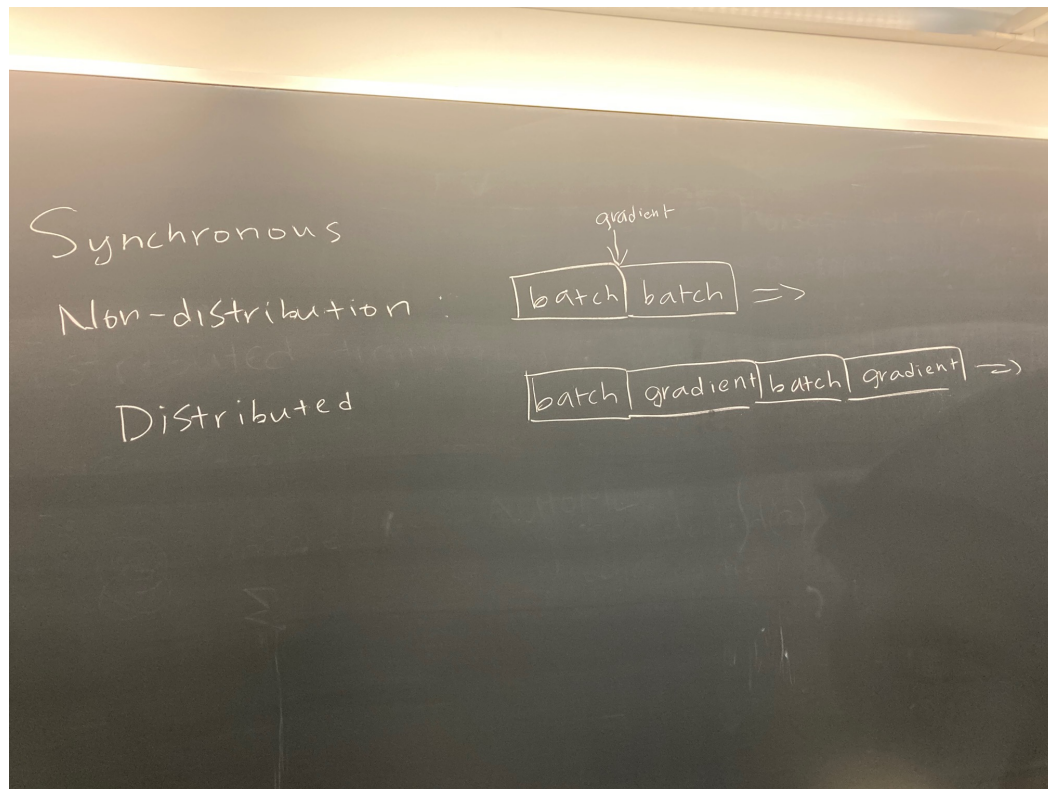 Synchronous
gradient
Non-distribution : batch batch =>
Distributed batch gradient batch gradient =>